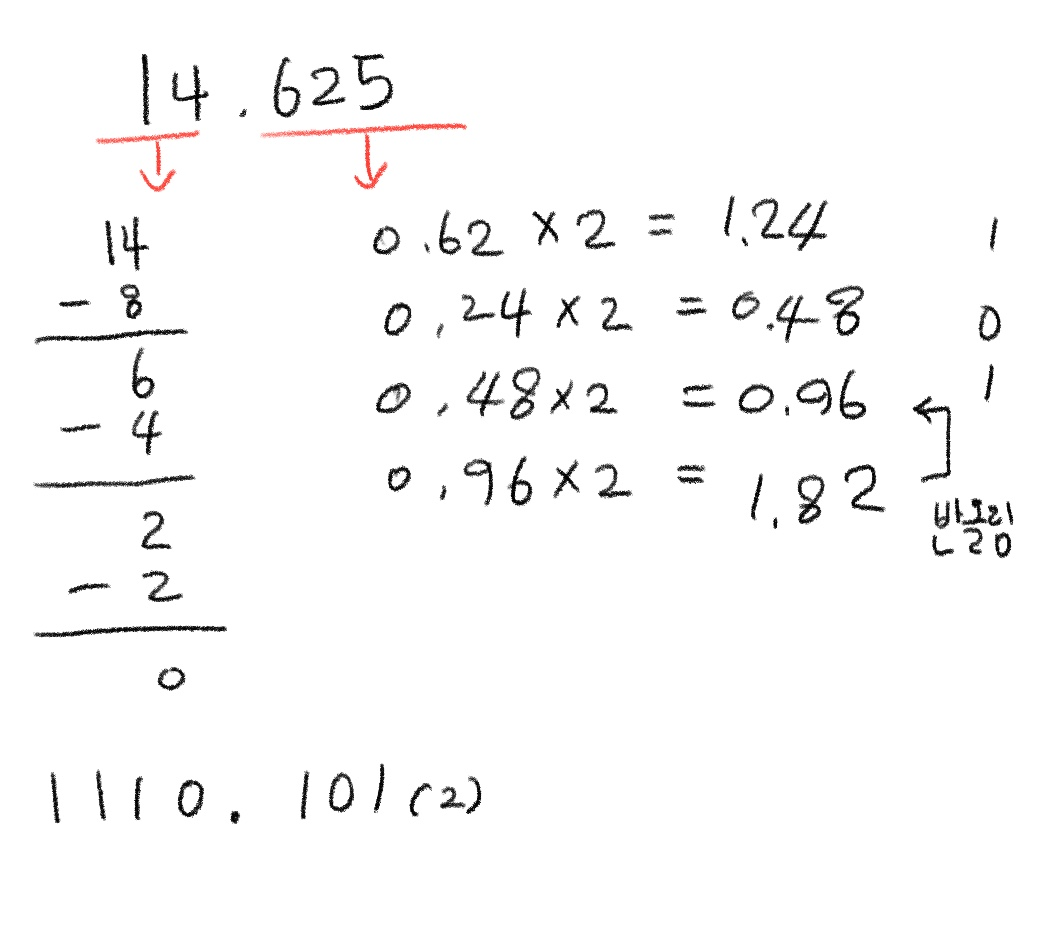 14.625
14
- 8
6
- 4
2
- 2
0
0.62 × 2 = 1.24 1
0.24 × 2 = 0.48 0
0.48 × 2 = 0.96 1
0.96 × 2 = 1.82
반올림
1110.101(2)